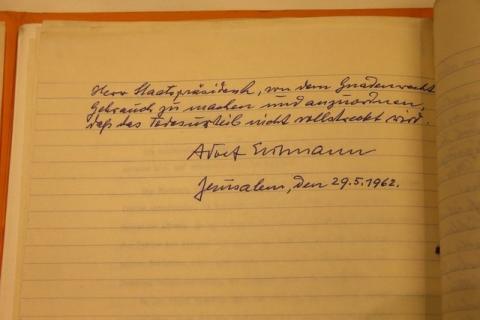 Herr Staatspräsident, von dem Gnadenrecht
Gebrauch zu machen und anzuordnen,
daß das Todesurteil nicht vollstreckt wird.
Adolf Eichmann
Jerusalem, den 29.5.1962.